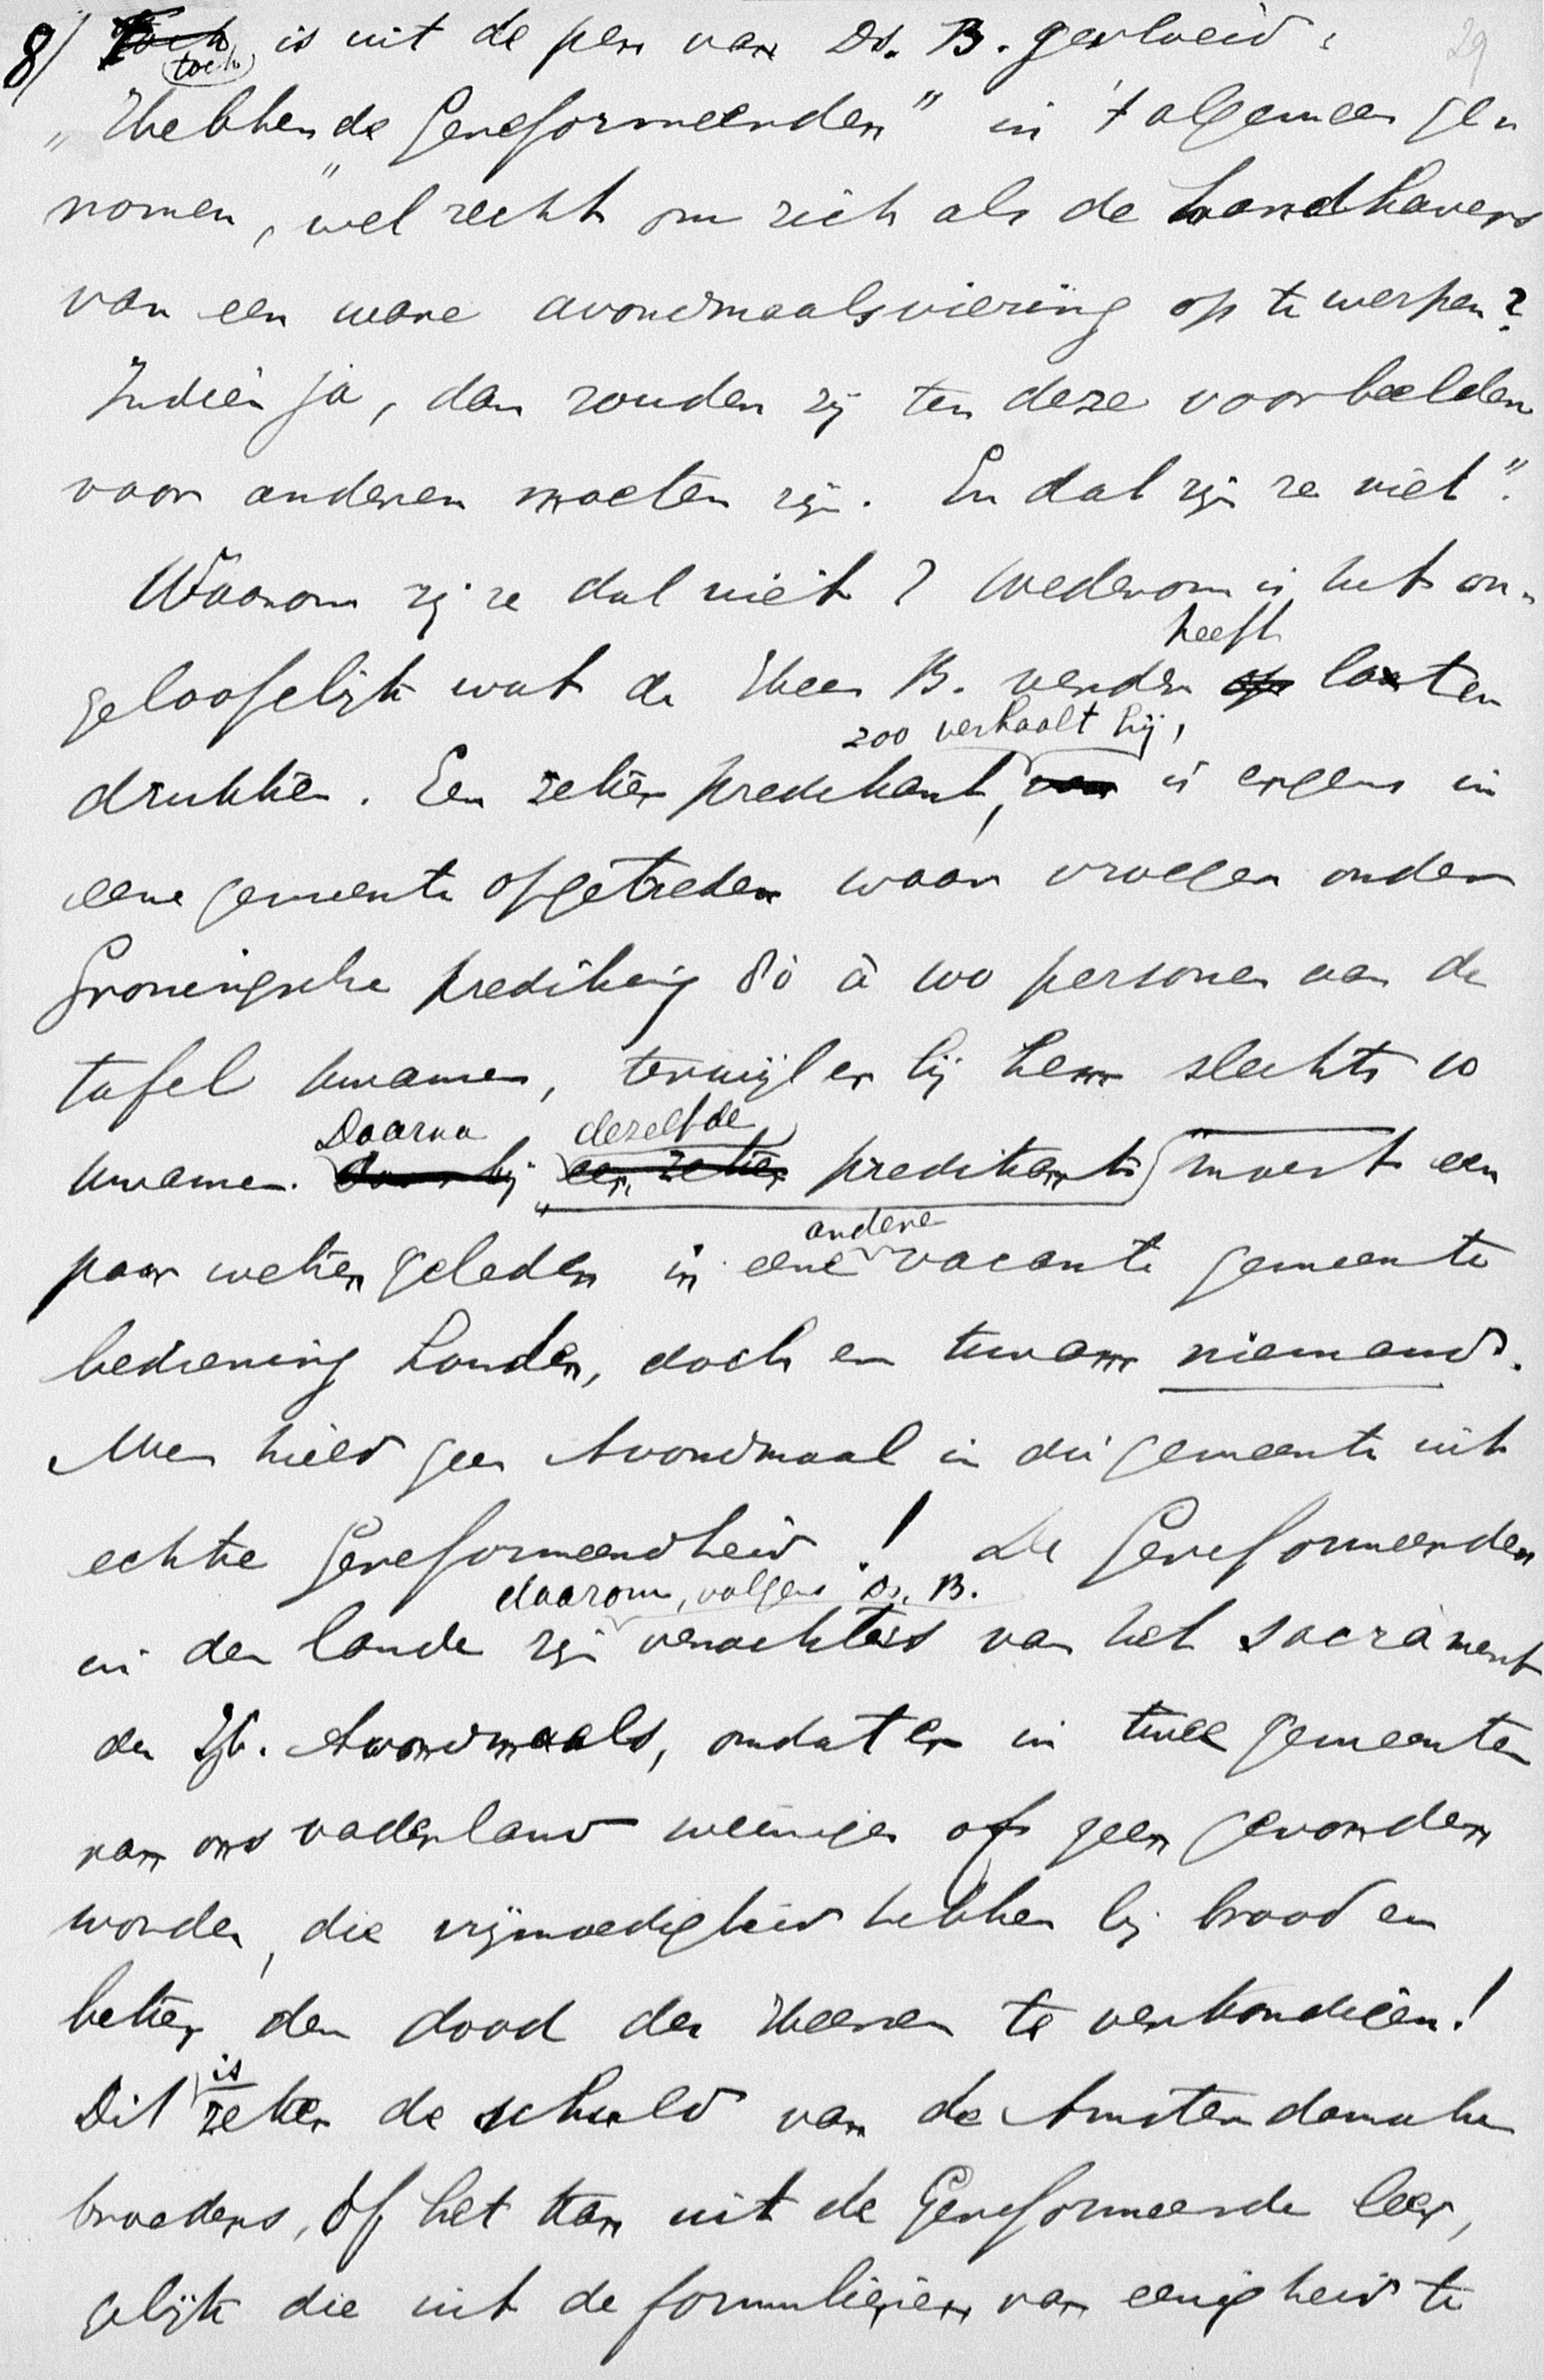 8/ Toch toch is uit de pen van Ds. B. gevloeid: 29
„Hebben de Gereformeerden” in 't algemeen ge„
nomen, „wel recht om zich als de handhavers
van een ware avondmaalsviering op te werpen?
Indien ja, dan zouden zij ten deze voorbeelden
voor anderen moeten zijn. En dat zijn ze niet”.
Waarom zijn ze dat niet? Wederom is het on„
heeft
geloofelijk wat de Heer B. verder op laten
zoo verhaalt hij,
drukken. Een zeker predikant, is ergens in
eene gemeente opgetreden waar vroeger onder
Groningsche prediking 80 à 100 personen aan de
tafel kwamen, terwijl er bij hem slechts 10
Daarna dezelfde
kwamen. Daar bij een zeker predikant moest een
andere
paar weken geleden in eene vacante gemeente
bediening houden, doch er kwam niemand.
Men hield geen Avondmaal in die gemeente uit
echte Gereformeerdheid! De Gereformeerden
daarom, volgens Ds. B.
in den lande zijn verachters van het sacrament
des H. Avondmaals, omdat er in twee gemeenten
van ons vaderland weinigen of geen gevonden
worden, die vrijmoedigheid hebben bij brood en
beker den dood des Heeren te verkondigen!
is
Dit zeker de schuld van de Amsterdamsche
broeders, òf het kan uit de Gereformeerde leer,
gelijk die uit de formulieren van eenigheid te